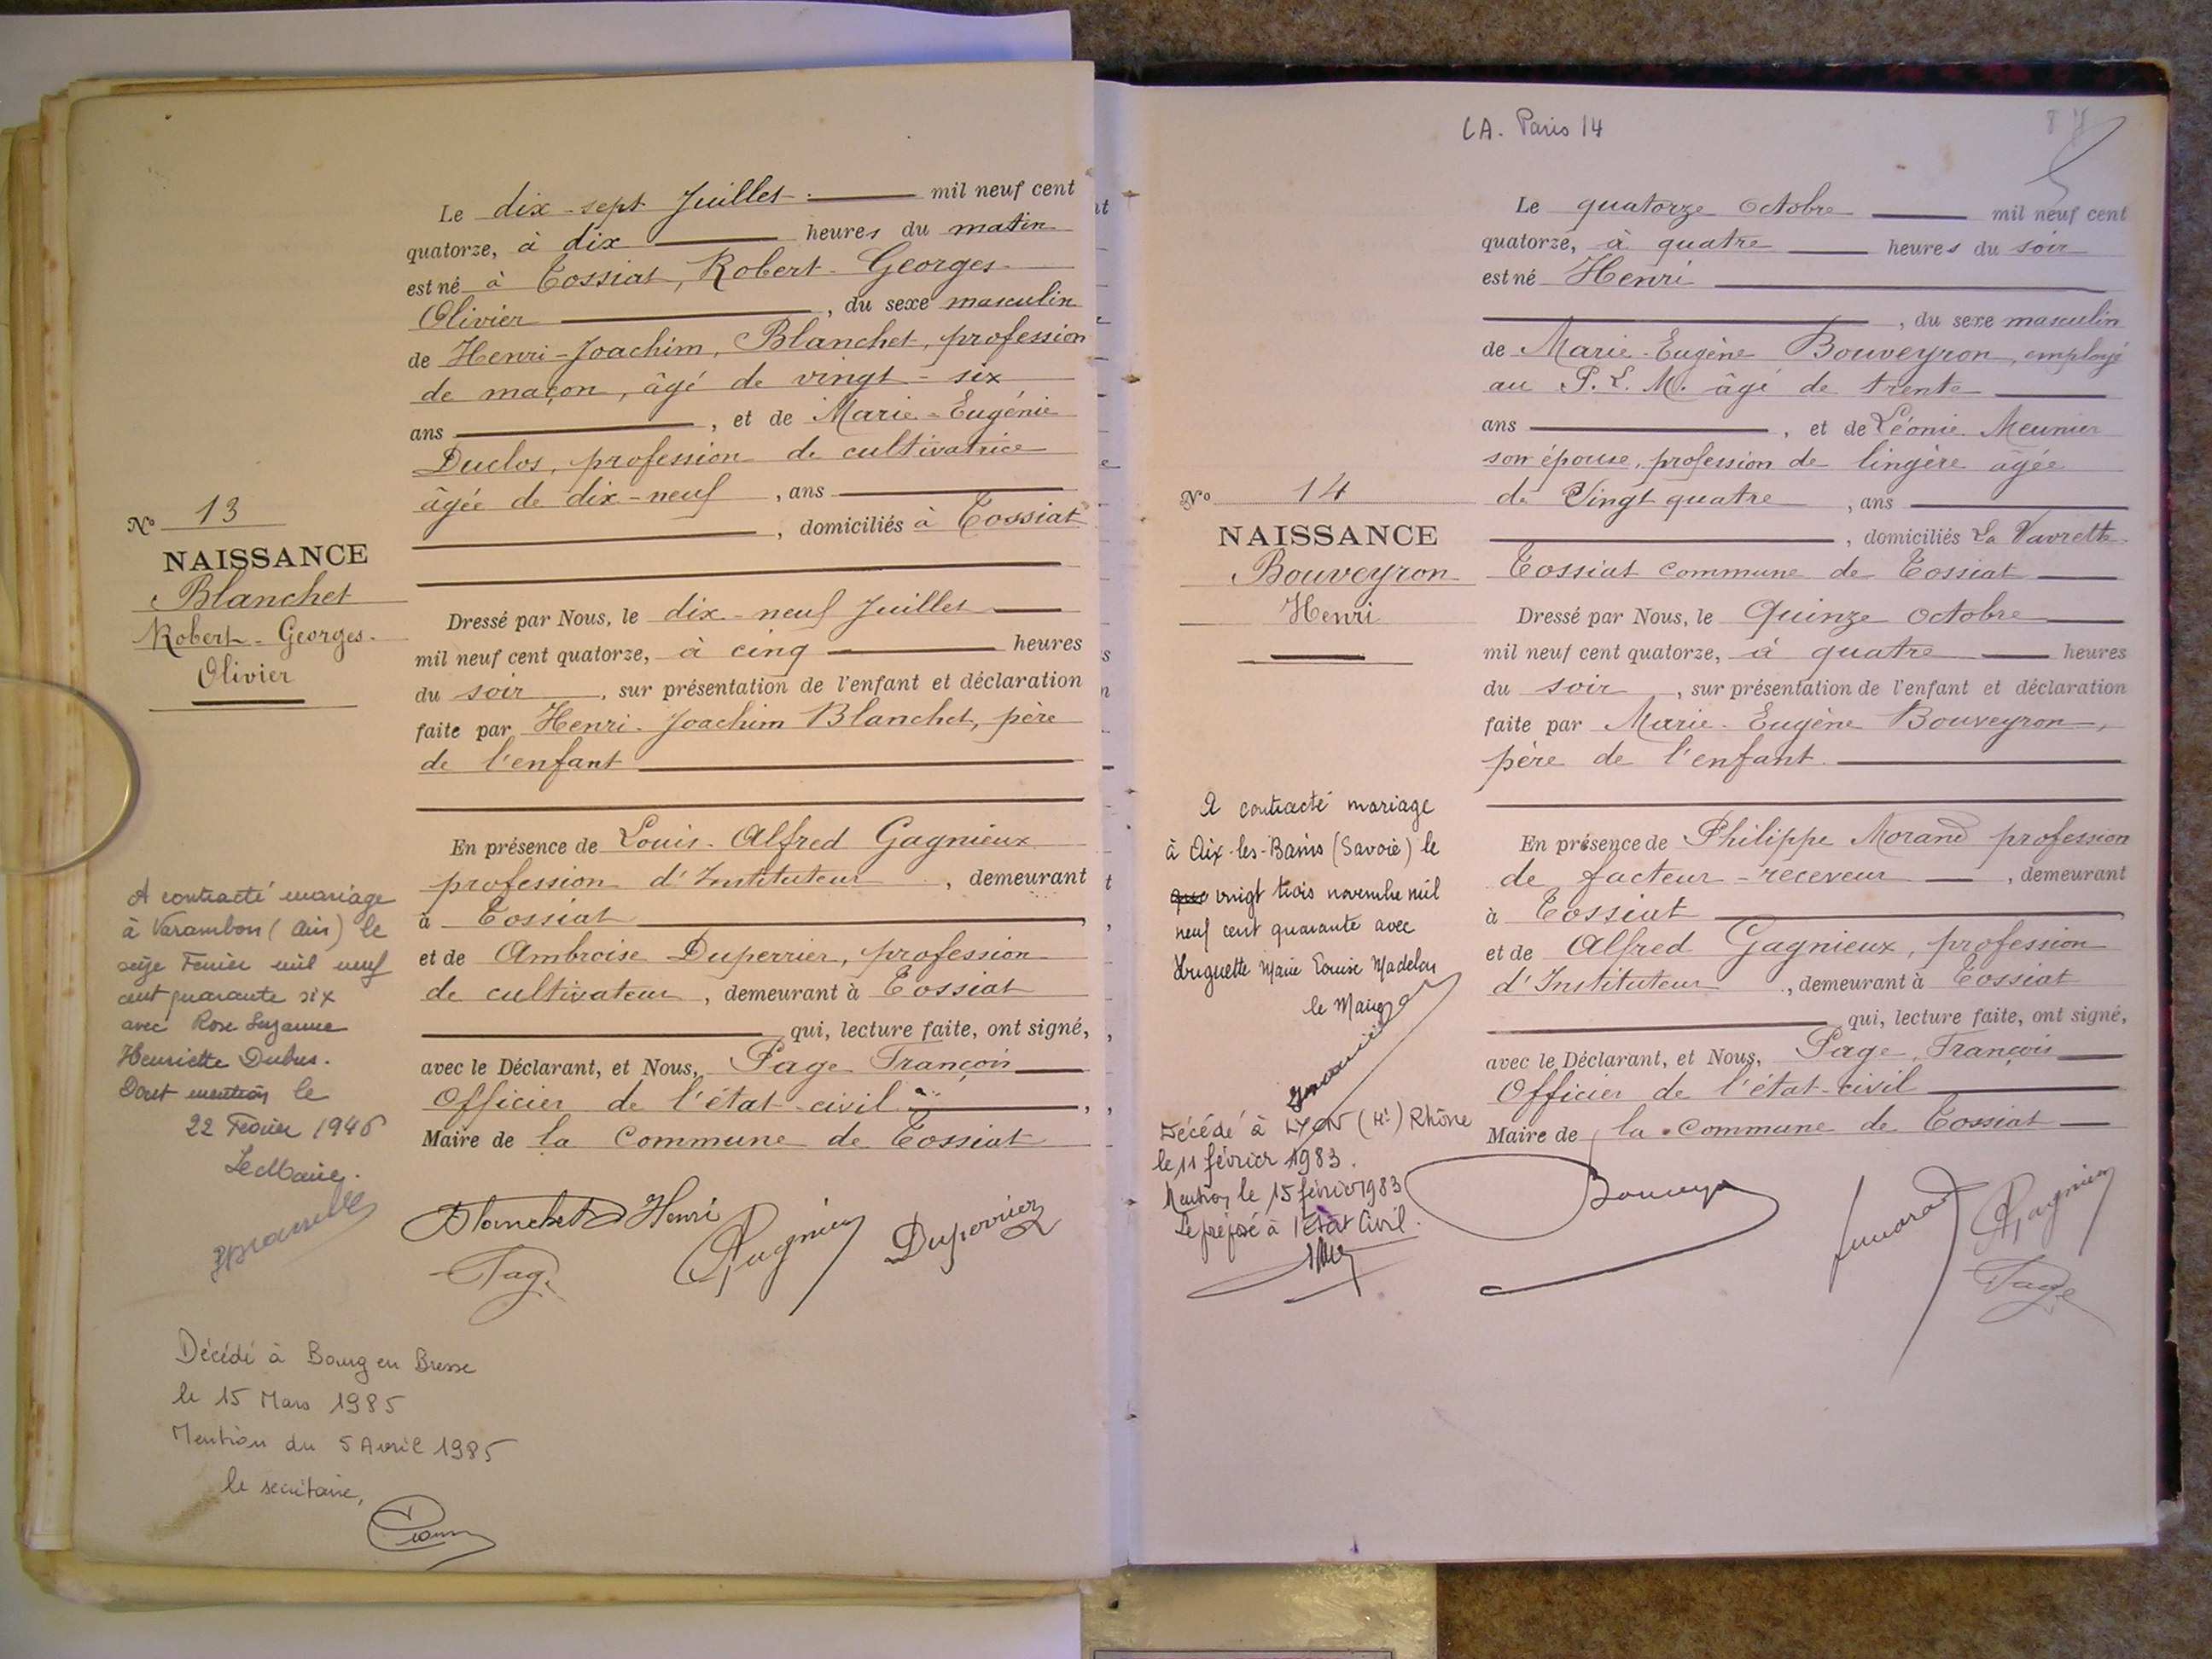 Le dix-sept Juillet mil neuf cent
quatorze, à dix heures du matin
est né à Tossiat, Robert-Georges-
Olivier, du sexe masculin
de Henri-Joachim, Blanchet, profession
de maçon, âgé de vingt-six
ans, et de Marie-Eugénie
Duclos, profession de cultivatrice
âgée de dix-neuf, ans
, domiciliés à Tossiat
Nº 13
NAISSANCE
Blanchet
Robert-Georges-
Olivier
Dressé par Nous, le dix-neuf Juillet
mil neuf cent quatorze, à cinq heures
du soir, sur présentation de l'enfant et déclaration
faite par Henri-Joachim Blanchet, père
de l'enfant
En présence de Louis-Alfred Gagnieux
profession d'Instituteur, demeurant
à Tossiat,
et de Ambroise Duperrier, profession
de cultivateur, demeurant à Tossiat
qui, lecture faite, ont signé,
avec le Déclarant, et Nous, Page François
Officier de l'état-civil,
Maire de la Commune de Tossiat
A contracté mariage
à Varambon (Ain) le
seize Fevrier mil neuf
cent quarante six
avec Rose Suzanne
Henriette Dubus.
Dont mention le
22 Fevrier 1946
Le Maire.
Blanchet Henri
Gagnieux
Duperrier
Page
Décédé à Bourg en Bresse
le 15 Mars 1985
Mention du 5 Avril 1985
le secrétaire,
LA. Paris 14
Le quatorze Octobre mil neuf cent
quatorze, à quatre heures du soir
est né Henri
, du sexe masculin
de Marie-Eugène Bouveyron, employé
au P.L.M. âgé de trente
ans, et de Léonie Meunier
son épouse, profession de lingère âgée
de Vingt quatre, ans
, domiciliés La Vavrette
Tossiat commune de Tossiat
Nº 14
NAISSANCE
Bouveyron
Henri
Dressé par Nous, le Quinze Octobre
mil neuf cent quatorze, à quatre heures
du soir, sur présentation de l'enfant et déclaration
faite par Marie-Eugène Bouveyron,
père de l'enfant.
En présence de Philippe Morand profession
de facteur-receveur, demeurant
à Tossiat
et de Alfred Gagnieux, profession
d'Instituteur, demeurant à Tossiat
qui, lecture faite, ont signé,
avec le Déclarant, et Nous, Page, François
Officier de l'état-civil
Maire de la Commune de Tossiat
A contracté mariage
à Aix-les-Bains (Savoie) le
vingt trois novembre mil
neuf cent quarante avec
Huguette Marie Louise Madelon
le Maire
Décédé à LYON (4e) Rhône
le 11 février 1983.
Mention le 15 février 1983
Le préposé à l'Etat Civil.
Bouveyron
Morand
Gagnieux
Page